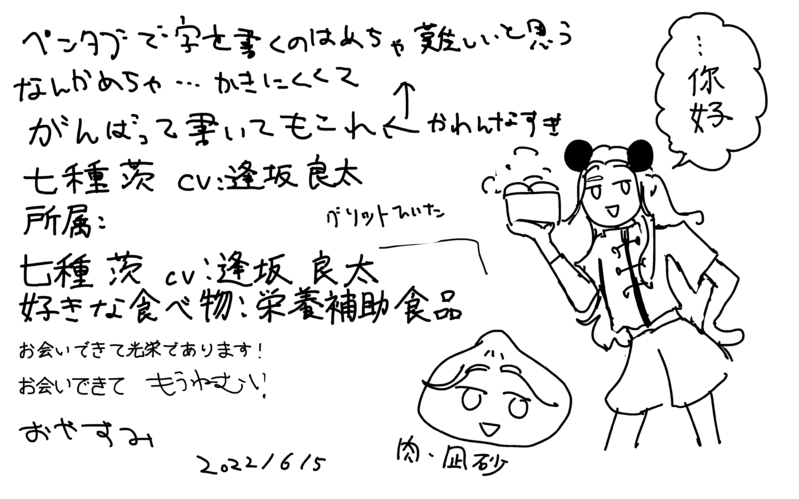 ペンタブで字を書くのはめちゃ難しいと思う
なんかめちゃ…かきにくくて
がんばって書いてもこれ←かわんなすぎ
七種茨 cv:逢坂良太
所属:
グリットひいた
七種茨 cv:逢坂良太
好きな食べ物:栄養補助食品
お会いできて光栄であります!
お会いできて もうねむい!
おやすみ
2022/6/15
…你好
肉・凪砂